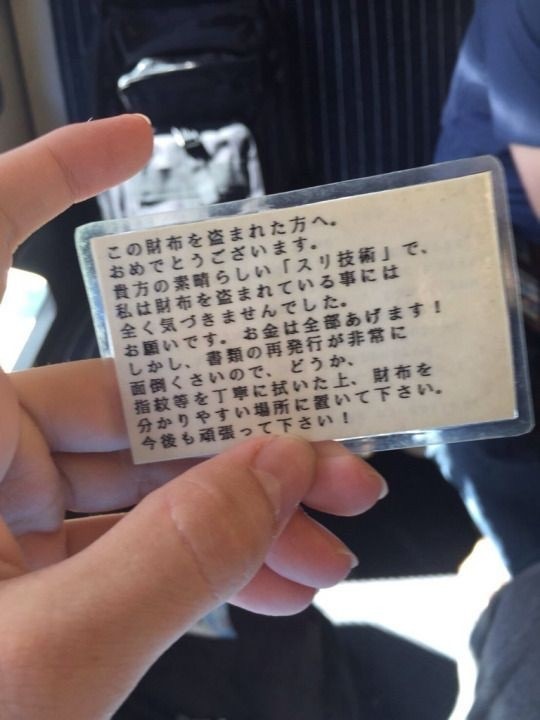 この財布を盗まれた方へ。
おめでとうございます。
貴方の素晴らしい「スリ技術」で、
私は財布を盗まれている事には
全く気づきませんでした。
お願いです。お金は全部あげます！
しかし、書類の再発行が非常に
面倒くさいので、どうか、
指紋等を丁寧に拭いた上、財布を
分かりやすい場所に置いて下さい。
今後も頑張って下さい！